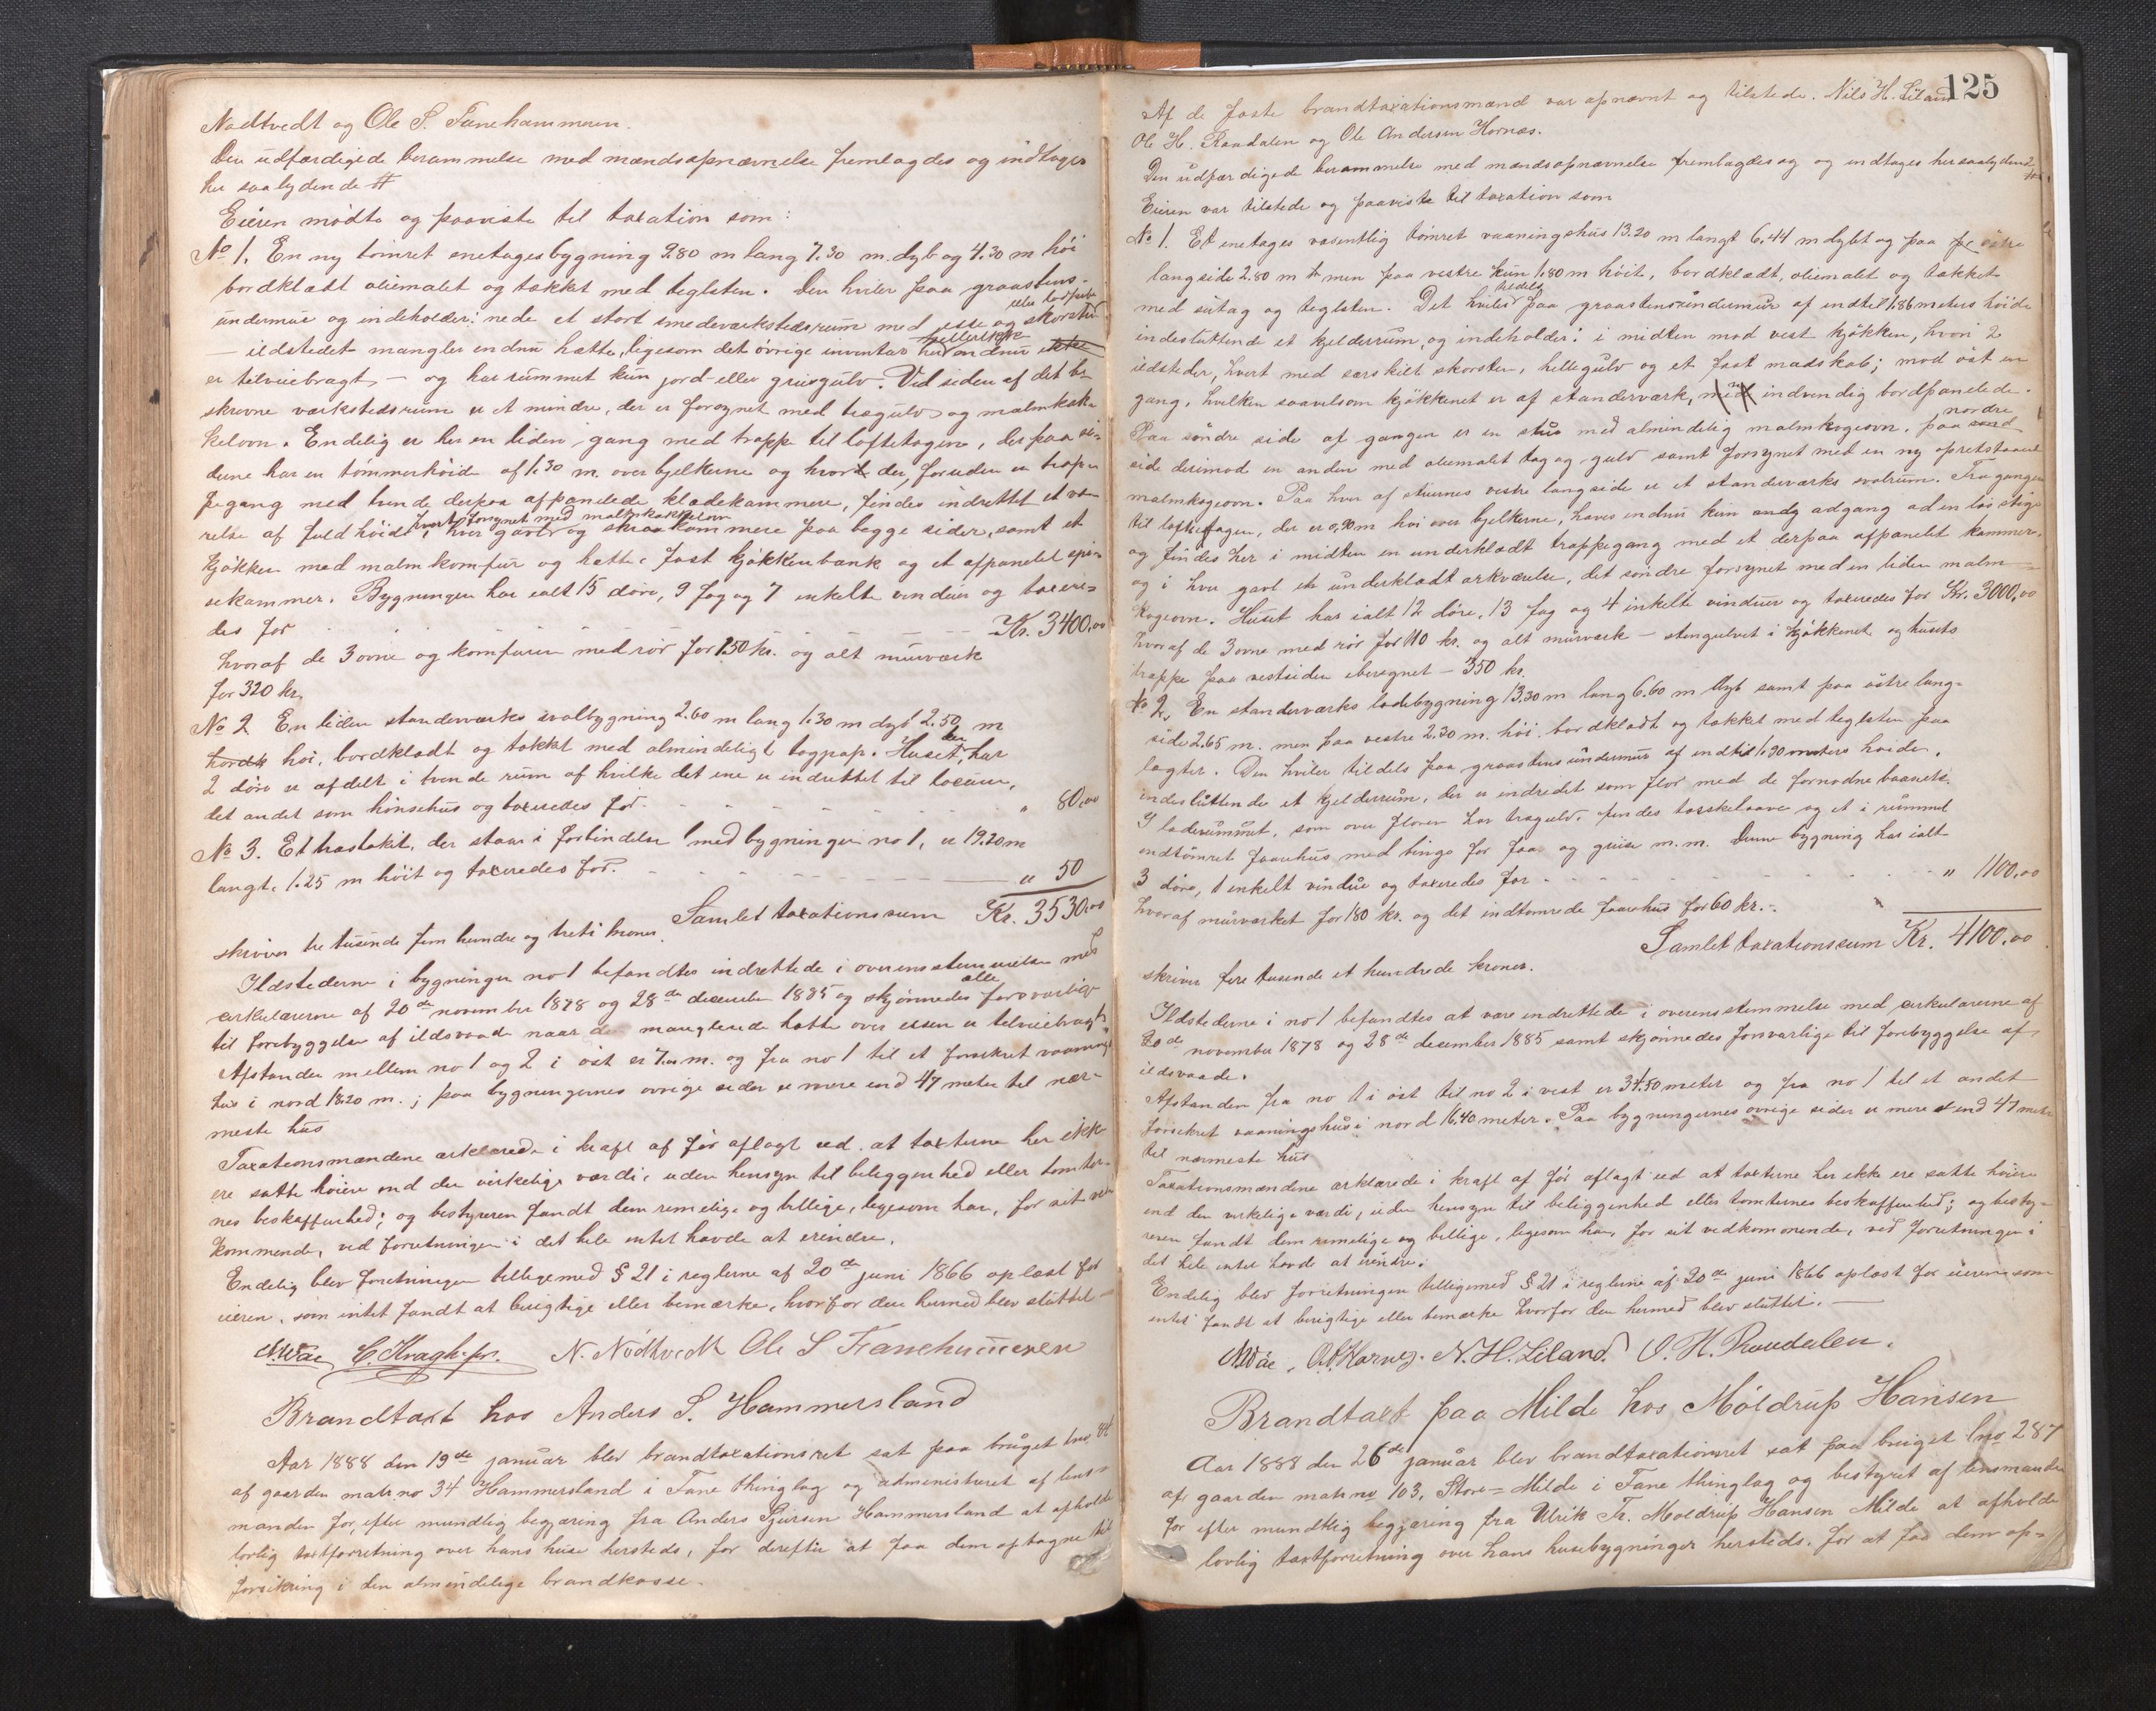 Nødtvedt og Ole S. Fanehammeren.
Den udfærdigede berammelse med mændsopnævnelse fremlagdes og indtages
her saalydende #
Eieren mødte og paaviste til taxation som:
No 1. En ny tømret enetagesbygning 9.80 m lang 7.30 m. dyb og 4.30 m høi
bordklædt oliemalet og tækket med teglsten. Den hviler paa graastens-
undermur og indeholder: nede et stort smedeværkstedsrum med esse og skorsten
– ildstedet mangler endnu hætte, ligesom det øvrige inventar heller ikke endnu
er tilveiebragt, – og har rummet kun jord- eller grusgulv. Ved siden af det be-
skrevne værkstedsrum er et mindre, der er forsynet med trægulv og malmkak-
kelovn. Endelig er her en liden gang med trappe til loftetagen, der paa si-
derne har en tømmerhøide af 1.30 m. over bjelkerne og hvor der, foruden en trap-
pegang med tvende derpaa afpanelede klædekammere, findes indrettet et væ-
relse af fuld høide i hver gavl, hvert forsynet med malmkakkelovn og skraakammere paa begge sider, samt et
kjøkken med malmkomfur og hætte, fast kjøkkenbænk og et afpanelet spi-
sekammer. Bygningen har ialt 15 døre, 9 fag og 7 enkelte vinduer og taxere-
des for - - - Kr. 3400,00
hvoraf de 3 ovne og komfuren med rør for 150 kr. og alt murværk
for 320 kr.
No 2 En liden standerværks svalbygning 2.60 m lang 1.30 m dyb 2.50 m
høi, bordklædt og tækket med almindeligt tagpap. Huset, der har
2 døre er afdelt i tvende rum af hvilke det ene er indrettet til locum,
det andet som hønsehus og taxeredes for - - - " 80,00
No 3. Et træstakit, der staar i forbindelse med bygningen no 1, er 19.20 m
langt, 1.25 m høit og taxeredes for - - - " 50
Samlet taxationssum Kr. 3530,00
skriver tre tusinde fem hundre og treti kroner.
Ildstederne i bygningen no 1 befandtes indrettede i overensstemmelse med
cirkulærerne af 20de november 1878 og 28de december 1885 og skjønnedes alle forsvarlige
til forebyggelse af ildsvaade naar den manglende hætte over essen er tilveiebragt.
Afstanden mellem no 1 og 2 i øst er m. og fra no 1 til et forsikret vaanings-
hus i nord 18.20 m.; paa bygningernes øvrige sider er mere end 47 meter til nær-
meste hus
Taxationsmændene erklærede i kraft af før aflagt ed at taxterne her ikke
ere satte høiere end den virkelige værdi, uden hensyn til beliggenhed eller tomter-
nes beskaffenhed; og bestyreren fandt dem rimelige og billige, ligesom han, for sit ved-
kommende, ved forretningen i det hele intet havde at erindre.
Endelig blev forretningen tilligemed § 21 i reglerne af 20de juni 1866 oplæst for
eieren, som intet fandt at berigtige eller bemærke, hvorfor den hermed blev sluttet.
C. Kragh. N. Nødtvedt Ole S Fanehammeren
Brandtaxt hos Anders S. Hammersland
Aar 1888 den 19de januar blev brandtaxationsret sat paa bruget lno 84
af gaarden matr no 34 Hammersland i Fane thinglag og administreret af lens-
manden for, efter mundtlig begjæring fra Anders Sjursen Hammersland at afholde
lovlig taxtforretning over hans huse hersteds, for derefter at faa dem optagne til
forsikring i den almindelige brandkasse.
125
Af de faste brandtaxationsmænd var opnævnt og tilstede. Nils H. Liland
Ole H. Raadalen og Ole Andersen Hornæs.
Den udfærdigede berammelse med mændsopnævnelse fremlagdes og og indtages her saalydende
Eieren var tilstede og paaviste til taxation som
No 1. Et enetages væsentlig tømret vaaningshus 13.20 m langt 6.44 m dybt og paa østre
langside 2.80 m men paa vestre kun 1.80 m høit, bordklædt, oliemalet og tækket
med sutag og teglsten. Det hviler tildels paa graastensundermur af indtil 1.86 meters høide
indesluttende et kjelderrum, og indeholder: i midten mod vest kjøkken, hvori 2
ildsteder, hvert med særskilt skorsten, hellegulv og et fast madskab; mod øst en
gang, hvilken saavelsom kjøkkenet er af standerværk, indvendig bordpanelede.
Paa søndre side af gangen er en stue med almindelig malmkogeovn, paa nordre
side derimod en anden med oliemalet tag og gulv samt forsynet med en ny opretstaaende
malmkogeovn. Paa hver af stuernes vestre langside er et standerværks svalrum. Fra gangen
til loftetagen, der er 0,90 m høi over bjelkerne, haves endnu kun adgang ad en løs stige
og findes her i midten en underklædt trappegang med et derpaa afpanelet kammer,
og i hver gavl et underklædt arkværelse, det søndre forsynet med en liden malm-
kogeovn. Huset har ialt 12 døre, 13 fag og 4 enkelte vinduer og taxeredes for Kr. 3000,00
hvoraf de 3 ovne med rør for 110 kr. og alt murværk – stengulvet i kjøkkenet og husets
trappe paa vestsiden iberegnet – 350 kr.
No 2. En standerværks ladebygning 13.30 m lang 6.60 m dyb samt paa østre lang-
side 2.65 m. men paa vestre 2.20 m. høi bordklædt og tækket med teglsten paa
lægter. Den hviler tildels paa graastensundermur af indtil 1.90 meters høide,
indesluttende et kjelderrum, der er indredet som flor med de fornødne baase.
I laderummet, som over floren har trægulv, findes tærskelaave og et i rummet
indtømret faarehus med binge for faa og grise m.m. Denne bygning har ialt
3 døre, 1 enkelt vindue og taxeredes for - - - " 1100,00
hvoraf murværket for 180 kr. og det indtømrede faarehus for 60 kr.
Samlet taxationssum Kr. 4100,00
skriver fire tusende et hundrede kroner.
Ildstederne i no 1 befandtes at være indrettede i overensstemmelse med cirkulærerne af
20de november 1878 og 28de december 1885 samt skjønnedes forsvarlige til forebyggelse af
ildsvaade.
Afstanden fra no 1 i øst til no 2 i vest er 34.50 meter og fra no 1 til et andet
forsikret vaaningshus i nord 16.40 meter. Paa bygningernes øvrige sider er mere end 47 meter
til nærmeste hus
Taxationsmændene erklærede i kraft af før aflagt ed at taxterne her ikke ere satte høiere
end den virkelige værdi, uden hensyn til beliggenhed eller tomternes beskaffenhed; og besty-
reren fandt dem rimelige og billige, ligesom han, for sit vedkommende, ved forretningen i
det hele intet havde at erindre.
Endelig blev forretningen tilligemed § 21 i reglerne af 20de juni 1866 oplæst for eieren som
intet fandt at berigtige eller bemærke hvorfor den hermed blev sluttet. –
O.A. Hornes. N. H. Liland. O. H. Raadalen.
Brandtaxt paa Milde hos Møldrup Hansen
Aar 1888 den 26de januar blev brandtaxationsret sat paa bruget lno 287
af gaarden matr no 103, Store-Milde i Fane thinglag og bestyret af lensmanden
for efter mundtlig begjæring fra Ulrik Fr. Møldrup Hansen Milde at afholde
lovlig taxtforretning over hans husebygninger hersteds. for at faa dem op-